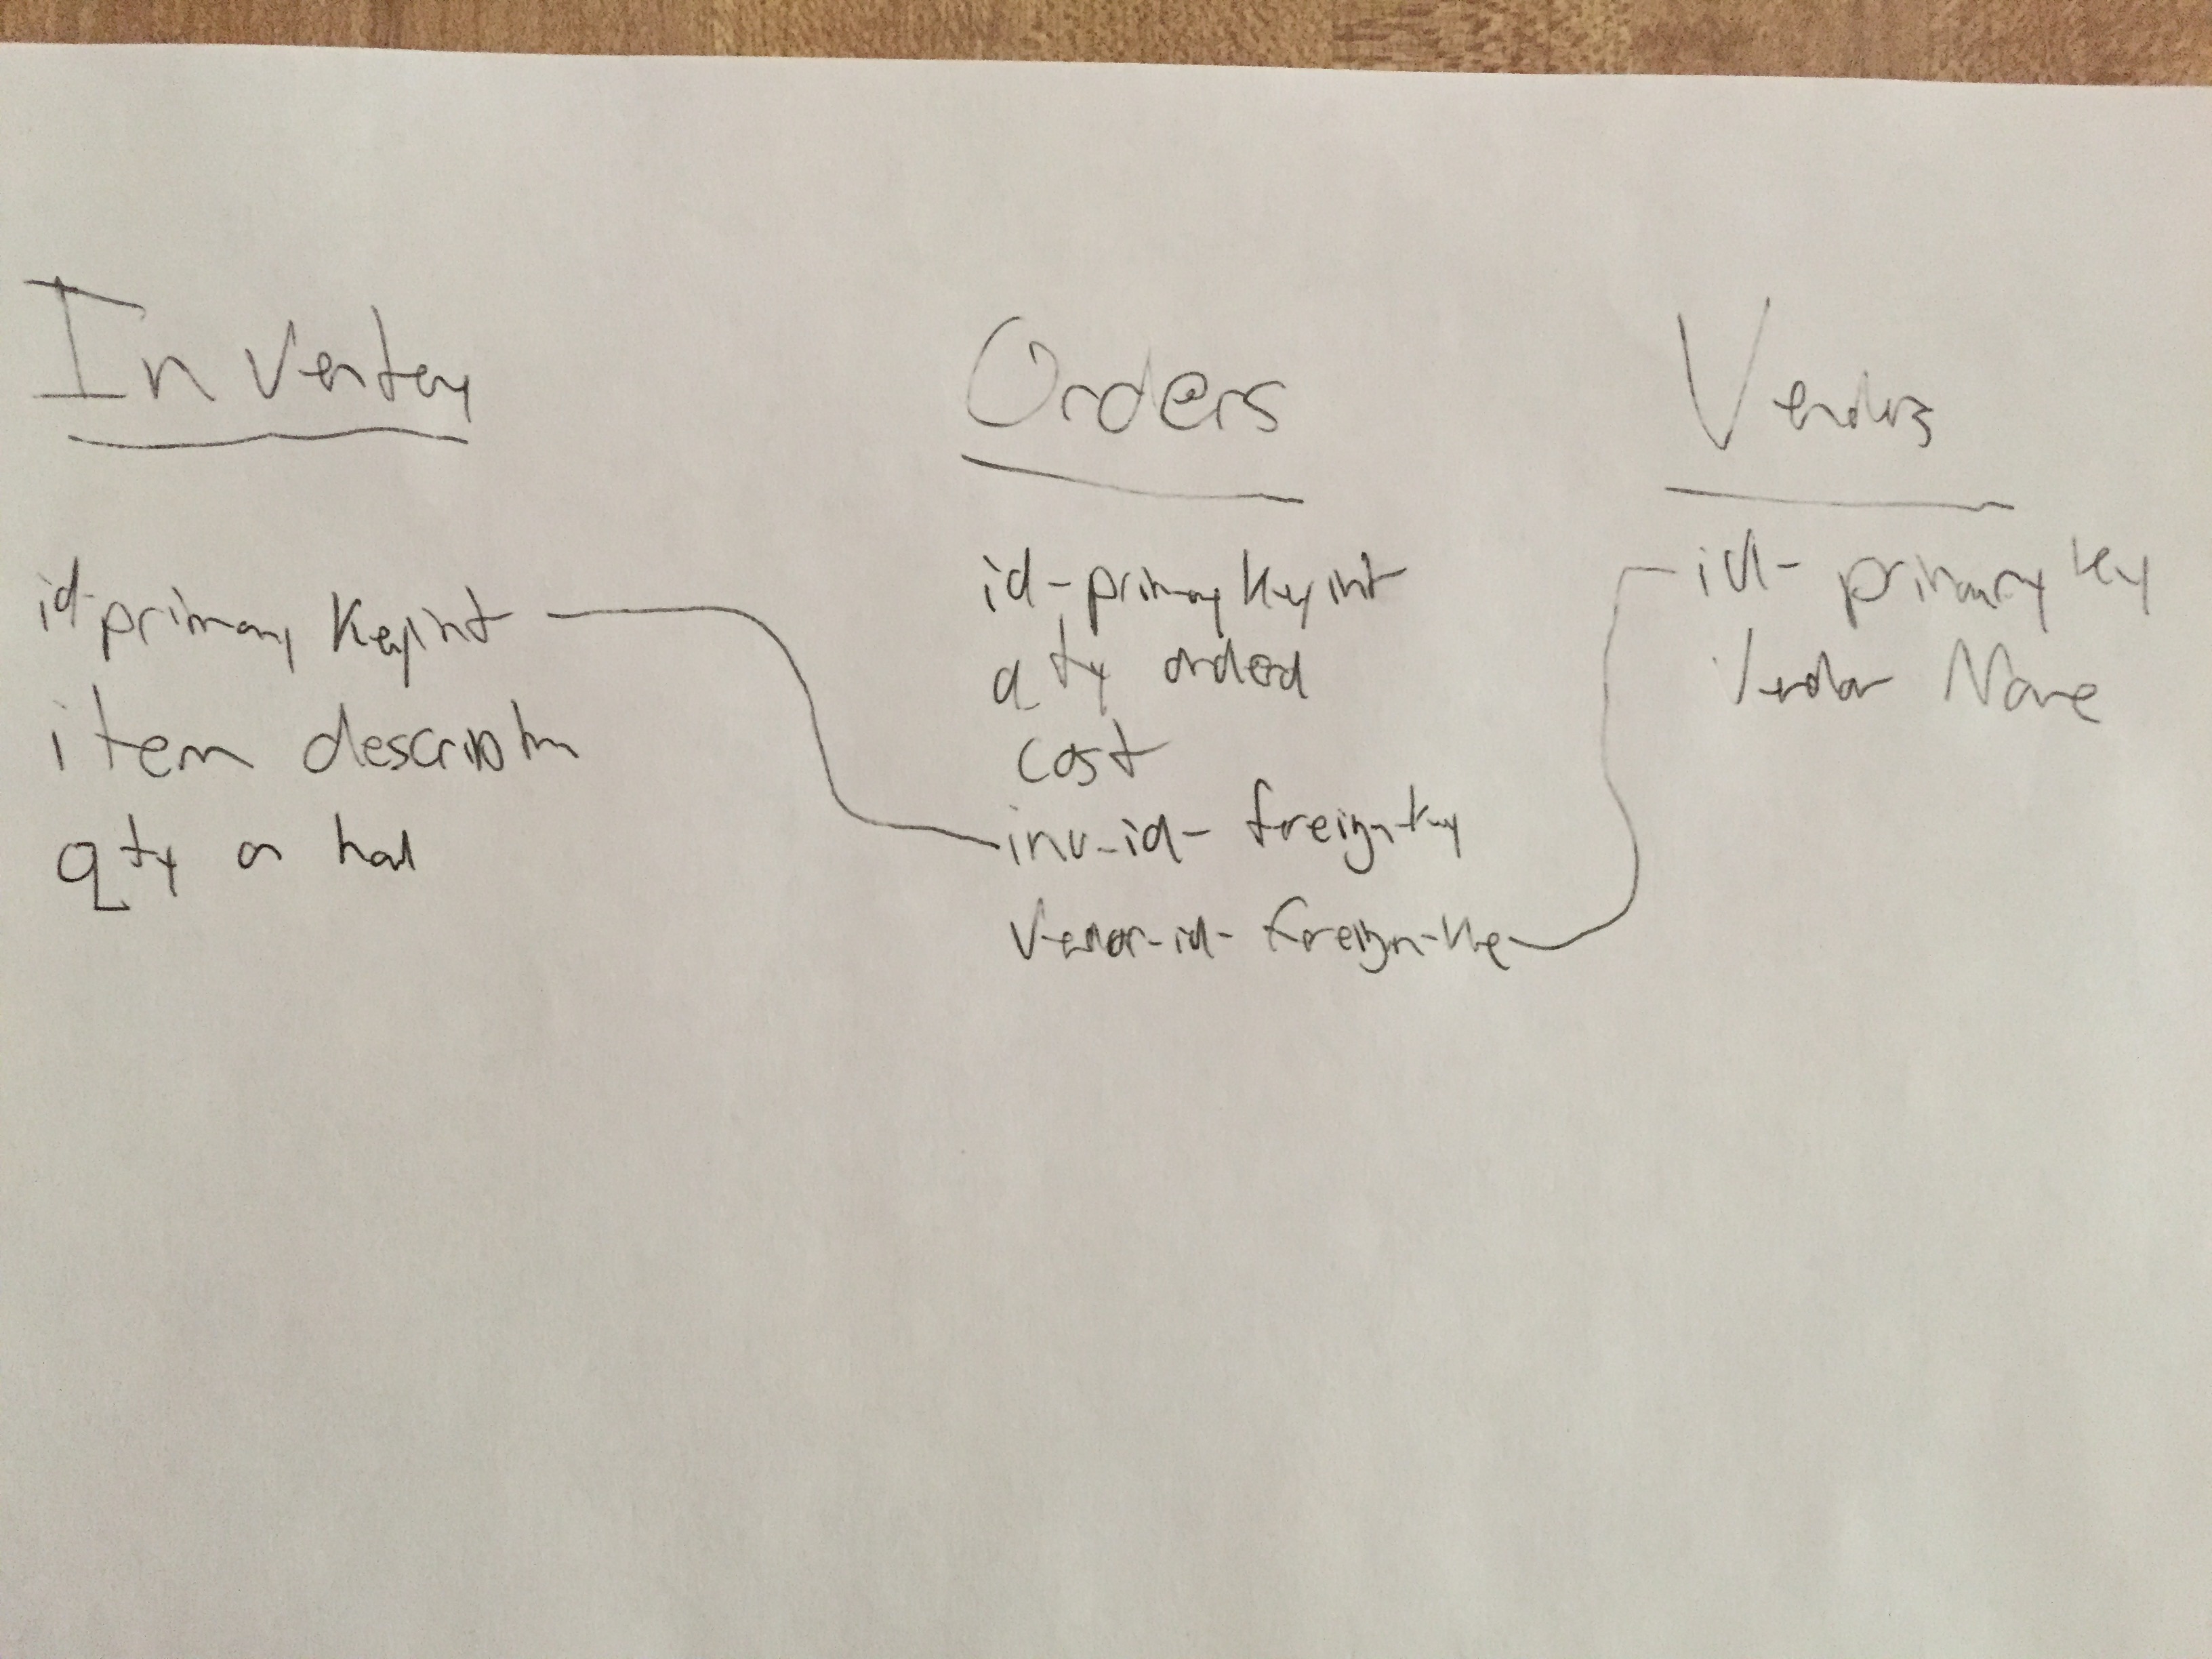 Inventory
id-primary key int
item description
qty on hand
Orders
id-primary key int
qty ordered
cost
inv-id-foreign-key
Vendor-id-foreign-ke
Vendors
id-primary key
Vendor Name